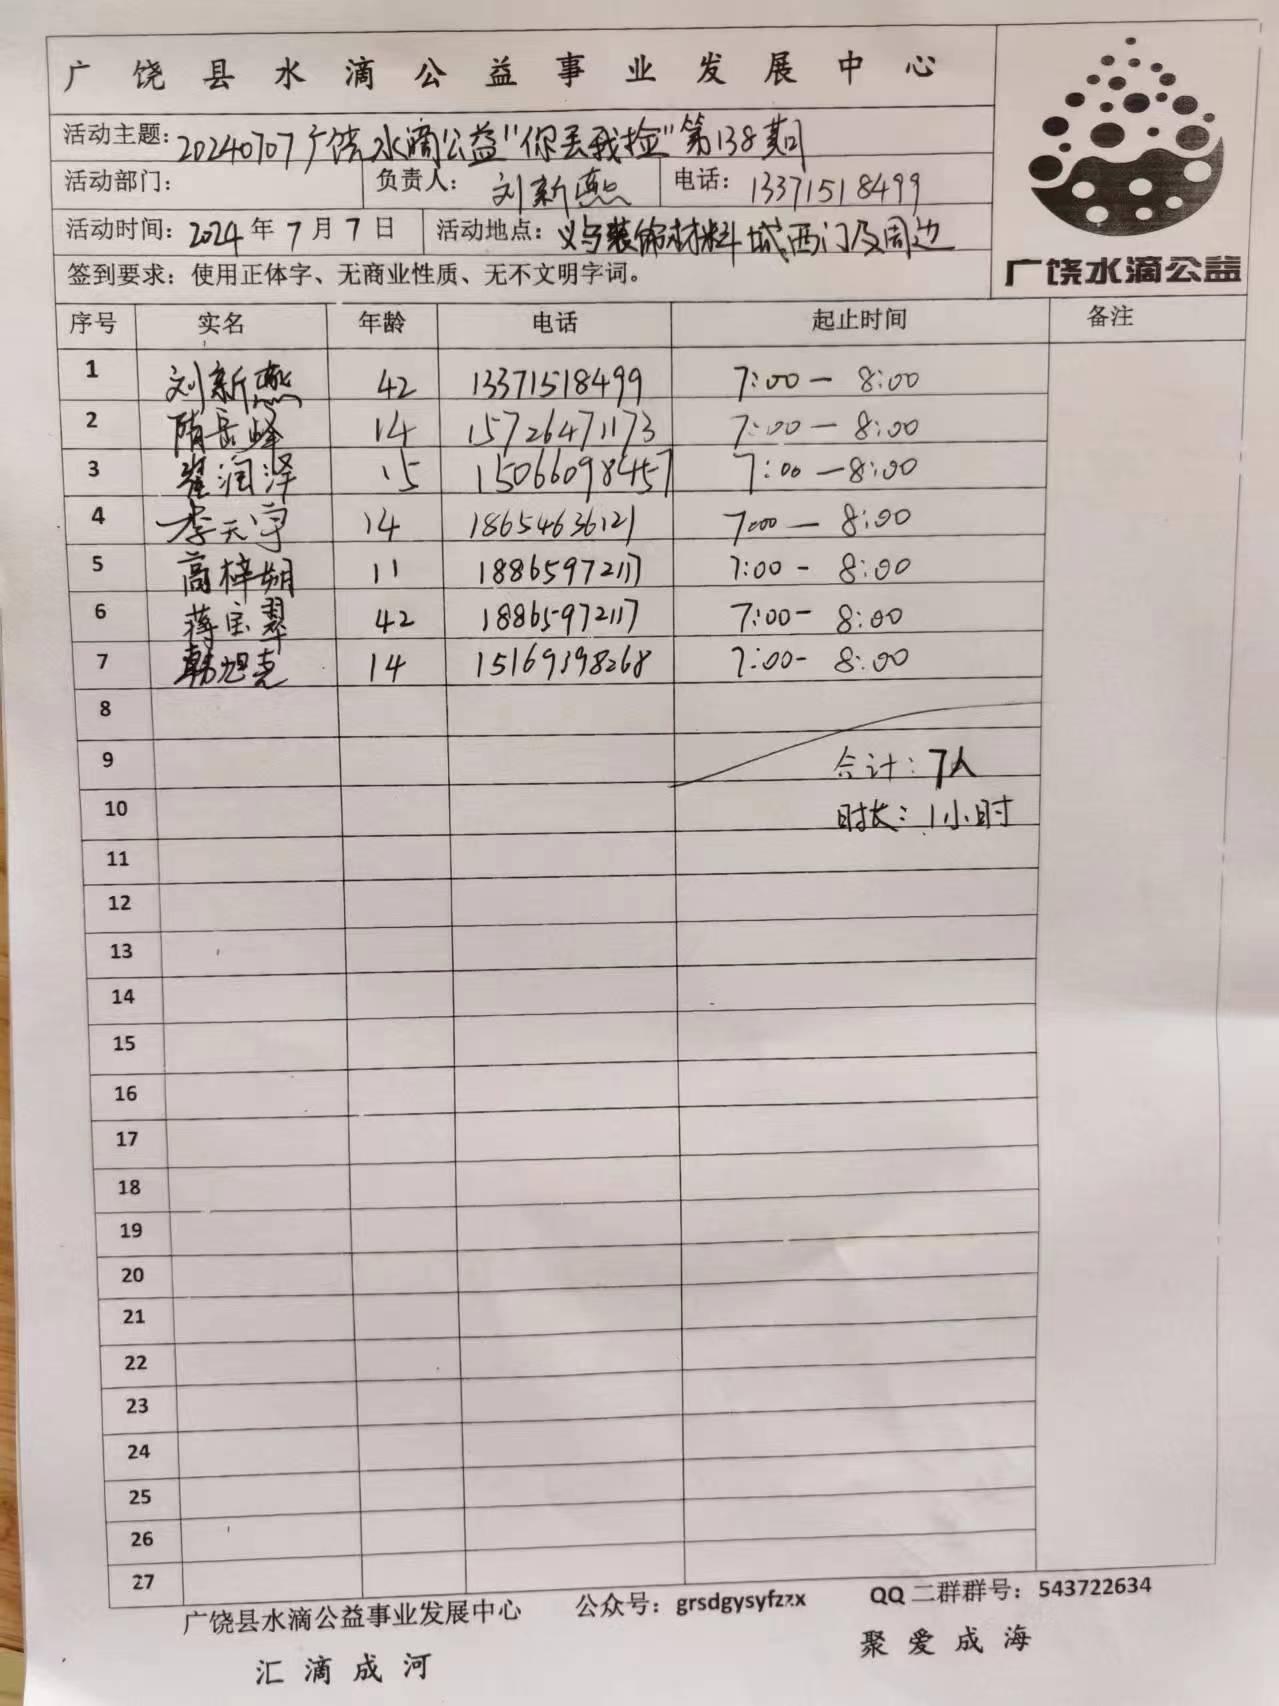 广饶县水滴公益事业发展中心
活动主题：20240707广饶水滴公益"你丢我捡"第138期
活动部门： 负责人：刘新燕 电话：13371518499
活动时间：2024年7月7日 活动地点：义乌装饰材料城西门及周边
签到要求：使用正体字、无商业性质、无不文明字词。
广饶水滴公益
序号 实名 年龄 电话 起止时间 备注
1 刘新燕 42 13371518499 7:00-8:00
2 隋岳峰 14 15726471173 7:00-8:00
3 崔润泽 15 15066098457 7:00-8:00
4 李天宇 14 18654636121 7:00-8:00
5 高梓朔 11 18865972117 7:00-8:00
6 蒋宝翠 42 18865972117 7:00-8:00
7 韩旭尧 14 15169398268 7:00-8:00
8
9 合计：7人
10 时长：1小时
11
12
13
14
15
16
17
18
19
20
21
22
23
24
25
26
27
广饶县水滴公益事业发展中心 公众号：grsdgysyfzzx QQ二群群号：543722634
汇滴成河 聚爱成海